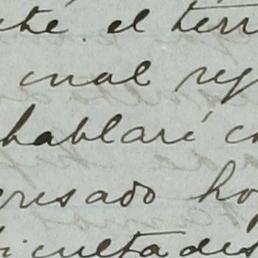 ché el terr
cual reg
hablaré co
eresado hoy
ficultades